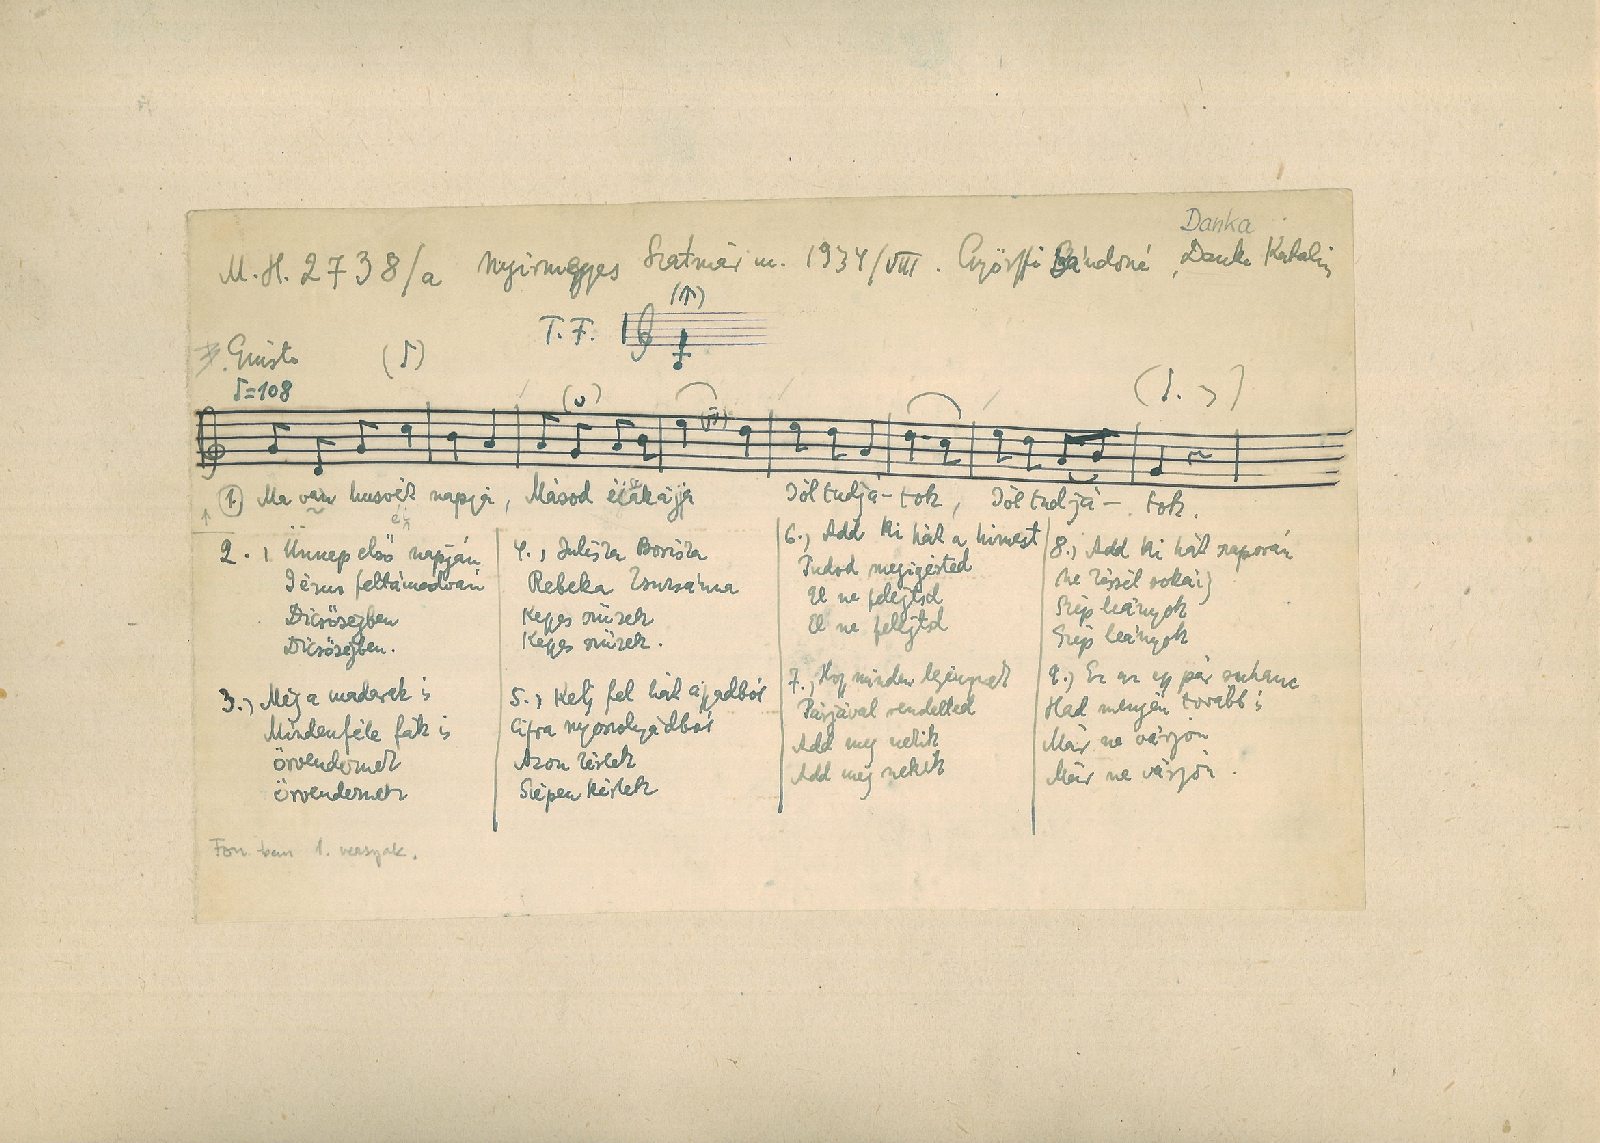 Danka
M. H. 2738/a Nyírmeggyes Szatmár m. 1934/VIII. Györffi Sándorné, Danka Katalin
T. F.
Giusto
♪=108
1) Ma van husvét napja, Másod éjszakája Jól tudjá-tok, Jól tudjá- tok.
2., Ünnep első napján
Jézus feltámadván
Dicsőségben
Dicsőségben.
3., Még a madarak is
Mindenféle fák is
örvendeznek
örvendeznek
4., Juliska Boriska
Rebeka Zsuzsánna
Kegyes szüzek
Kegyes szüzek.
5., Kelj fel hát ágyadból
Cifra nyoszolyádból
Azon kérlek
Szépen kérlek
6., Add ki hát a himest
Tudod megigérted
El ne felejtsd
El ne felejtsd
7., Hogy minden legénynek
Párjával rendelted
Add meg nekik
Add meg nekik
8., Add ki hát szaporán
Ne késsél soká is
Szép leányok
Szép leányok
9., Ez az egy pár suhanc
Had menyen tovább is
Már ne várjon
Már ne várjon.
Fon.-ban 1. versszak.